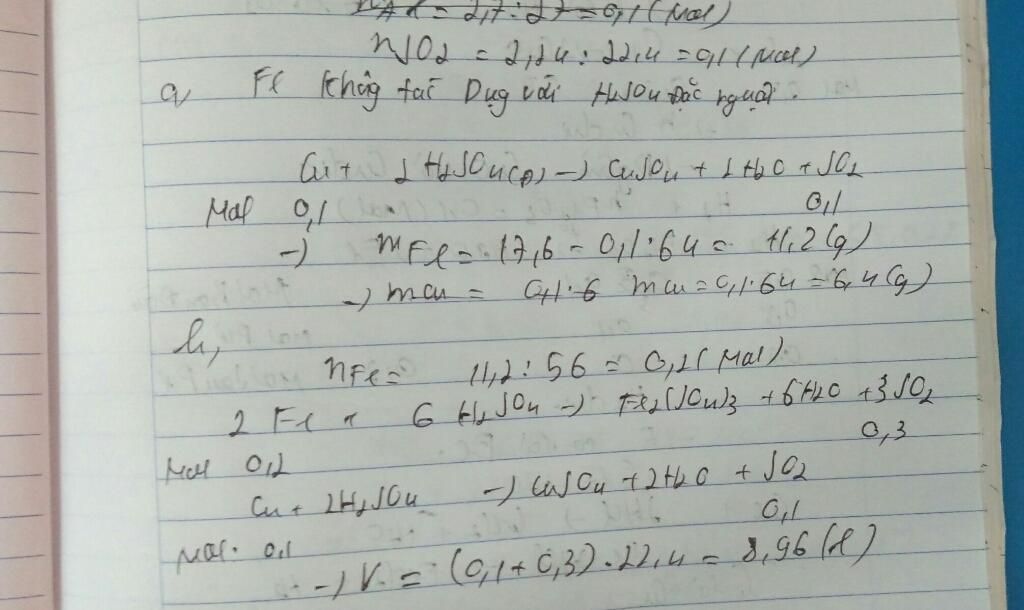 nAl = 2,7 : 27 = 0,1 (Mol)
nSO2 = 2,24 : 22,4 = 0,1 (Mol)
a, Fe không tác Dụng với H2SO4 Đặc nguội.
Cu + 2 H2SO4(Đ) -> CuSO4 + 2 H2O + SO2
Mol 0,1 0,1
-> mFe = 17,6 - 0,1.64 = 11,2 (g)
-> mCu = 0,1.6 mCu = 0,1.64 = 6,4 (g)
b,
nFe = 11,2 : 56 = 0,2 (Mol)
2 Fe + 6 H2SO4 -> Fe2(SO4)3 + 6H2O + 3SO2
Mol 0,2 0,3
Cu + 2H2SO4 -> CuSO4 + 2H2O + SO2
Mol 0,1 0,1
-> V = (0,1 + 0,3) . 22,4 = 8,96 (l)